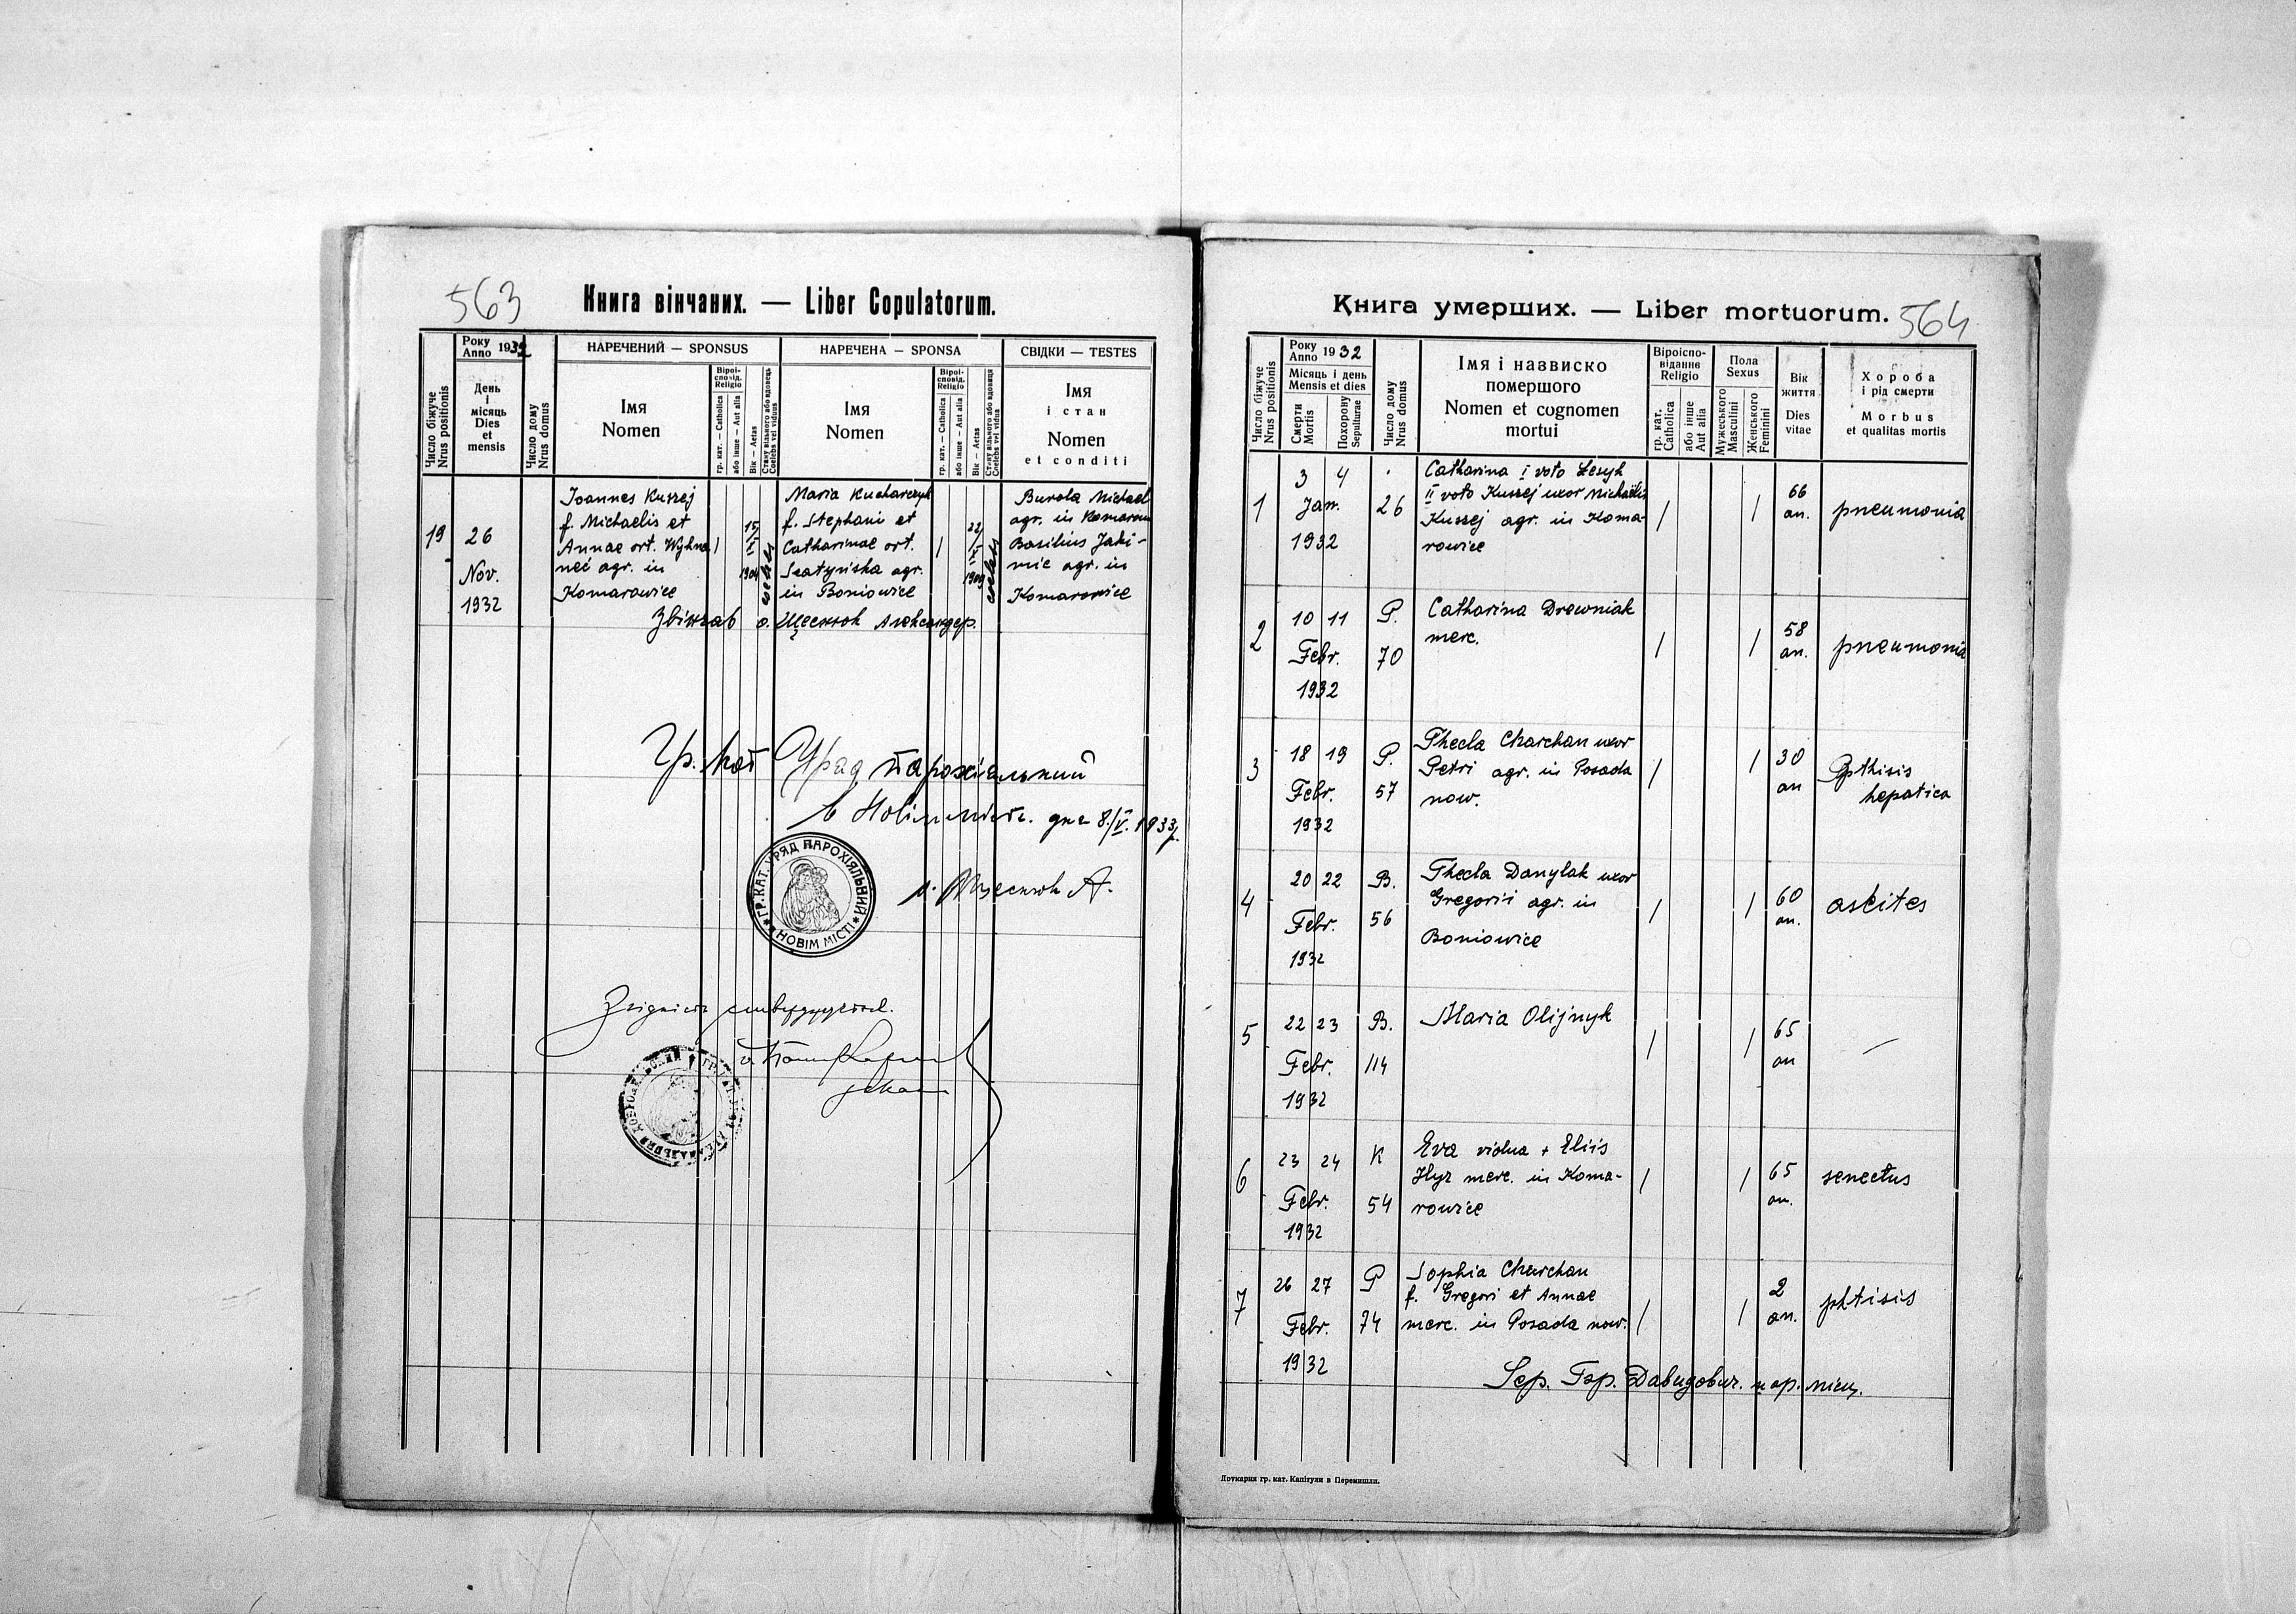 563
Книга вінчаних. — Liber Copulatorum.
Число біжуче
Nrus positionis
Року
Anno 1932
День
і
місяць
Dies
et
mensis
Число дому
Nrus domus
НАРЕЧЕНИЙ — SPONSUS
Імя
Nomen
Віроі-
сповід.
Religio
гр. кат. — Catholica
або інше — Aut alia
Вік — Aetas
Стану вільного або вдовець
Coelebs vel viduus
НАРЕЧЕНА — SPONSA
Імя
Nomen
Віроі-
сповід.
Religio
гр. кат. — Catholica
або інше — Aut alia
Вік — Aetas
Стану вільного або вдовиця
Coelebs vel vidua
СВІДКИ — TESTES
Імя
і стан
Nomen
et conditi
19
26
Nov.
1932
Joannes Kuszej
f. Michaelis et
Annae ort. Wyhna
neć agr. in
Komarowice
/
15/
II
1904
coelebs
Maria Kucharczyk
f. Stephani et
Catharinae ort.
agr.
in Boniowice
/
22/
1909
coelebs
Burola Michael
agr. in Komarow
Basilius Jaki-
mic agr. in
Komarowice
Звінчав о. Щеснюк Александер.
Гр. кат Уряд парохіяльний
в Новім місті. дня 8./V. 1933р.
ГР.КАТ. УРЯД ПАРОХІЯЛЬНИЙ
НОВІМ МІСТІ
о. Щеснюк А.
декан
Книга умерших. — Liber mortuorum.
564
Число біжуче
Nrus positionis
Року
Anno 1932
Місяць і день
Mensis et dies
Смерти
Mortis
Похорону
Sepulturae
Число дому
Nrus domus
Імя і назвиско
помершого
Nomen et cognomen
mortui
Віроіспо-
відання
Religio
гр. кат.
Catholica
або інше
Aut alia
Пола
Sexus
Мужеського
Masculini
Женського
Feminini
Вік
життя
Dies
vitae
Хороба
і рід смерти
Morbus
et qualitas mortis
1
3 4
Jan.
1932
26
Catharina I voto Lesyk
II voto Kuszej uxor Michaelis
Kuszej agr. in Koma-
rowice
/
/
66
an.
pneumonia
2
10 11
Febr.
1932
P.
70
Catharina Drewniak
merc.
/
/
58
an.
pneumonia
3
18 19
Febr.
1932
P.
57
Thecla Charchan uxor
Petri agr. in Posada
now.
/
/
30
an
Phthisis
hepatica
4
20 22
Febr.
1932
B.
56
Thecla Danylak uxor
Gregorii agr. in
Boniowice
/
/
60
an.
ascites
5
22 23
Febr.
1932
B.
114
Maria Olijnyk
/
/
65
an
—
6
23 24
Febr.
1932
K
54
Eva vidua + Eliis
Hyz merc. in Koma-
rowice
/
/
65
an.
senectus
7
26 27
Febr.
1932
P
74
Sophia Charchan
f. Gregori et Annae
merc. in Posada now.
/
/
2
an.
phtisis
Давидович.
Друкарня гр. кат. Капітули в Перемишли.